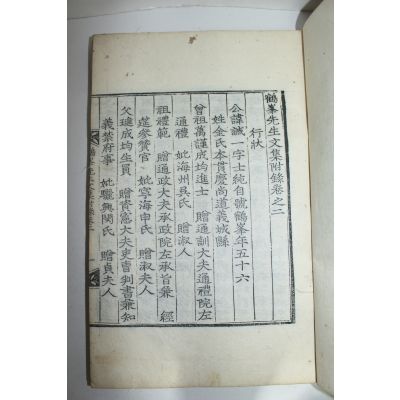 鶴峯先生文集附錄卷之二
行狀
公諱誠一字士純自號鶴峯年五十六
姓金氏本貫慶尚道義城縣
曾祖萬謹成均進士 贈通訓大夫通禮院左
通禮 妣海州吳氏 贈淑人
祖禮範 贈通政大夫承政院左承旨兼 經
筵參贊官 妣寧海申氏 贈淑夫人
父璡成均生員 贈資憲大夫吏曹判書兼知
義禁府事 妣驪興閔氏 贈貞夫人